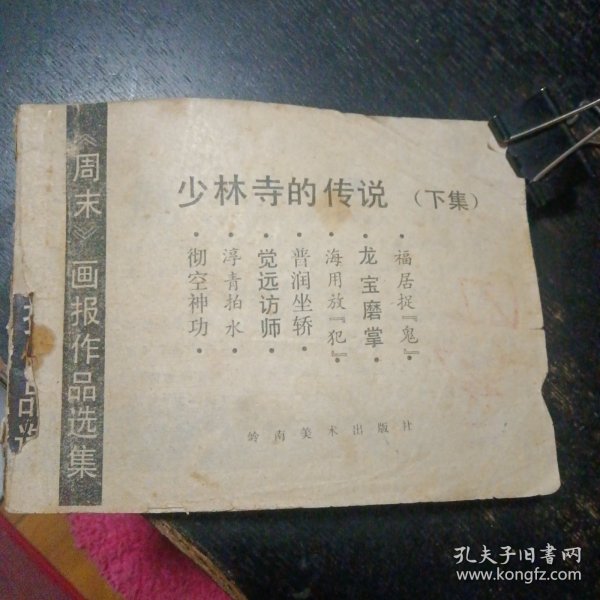 《周末》画报作品选集
少林寺的传说（下集）
·福居捉『鬼』·
·龙宝磨掌·
·海用放『犯』·
·普润坐轿·
·觉远访师·
·淳青拍水·
·彻空神功·
岭南美术出版社
品
孔夫子旧书网
www.kongfz.com